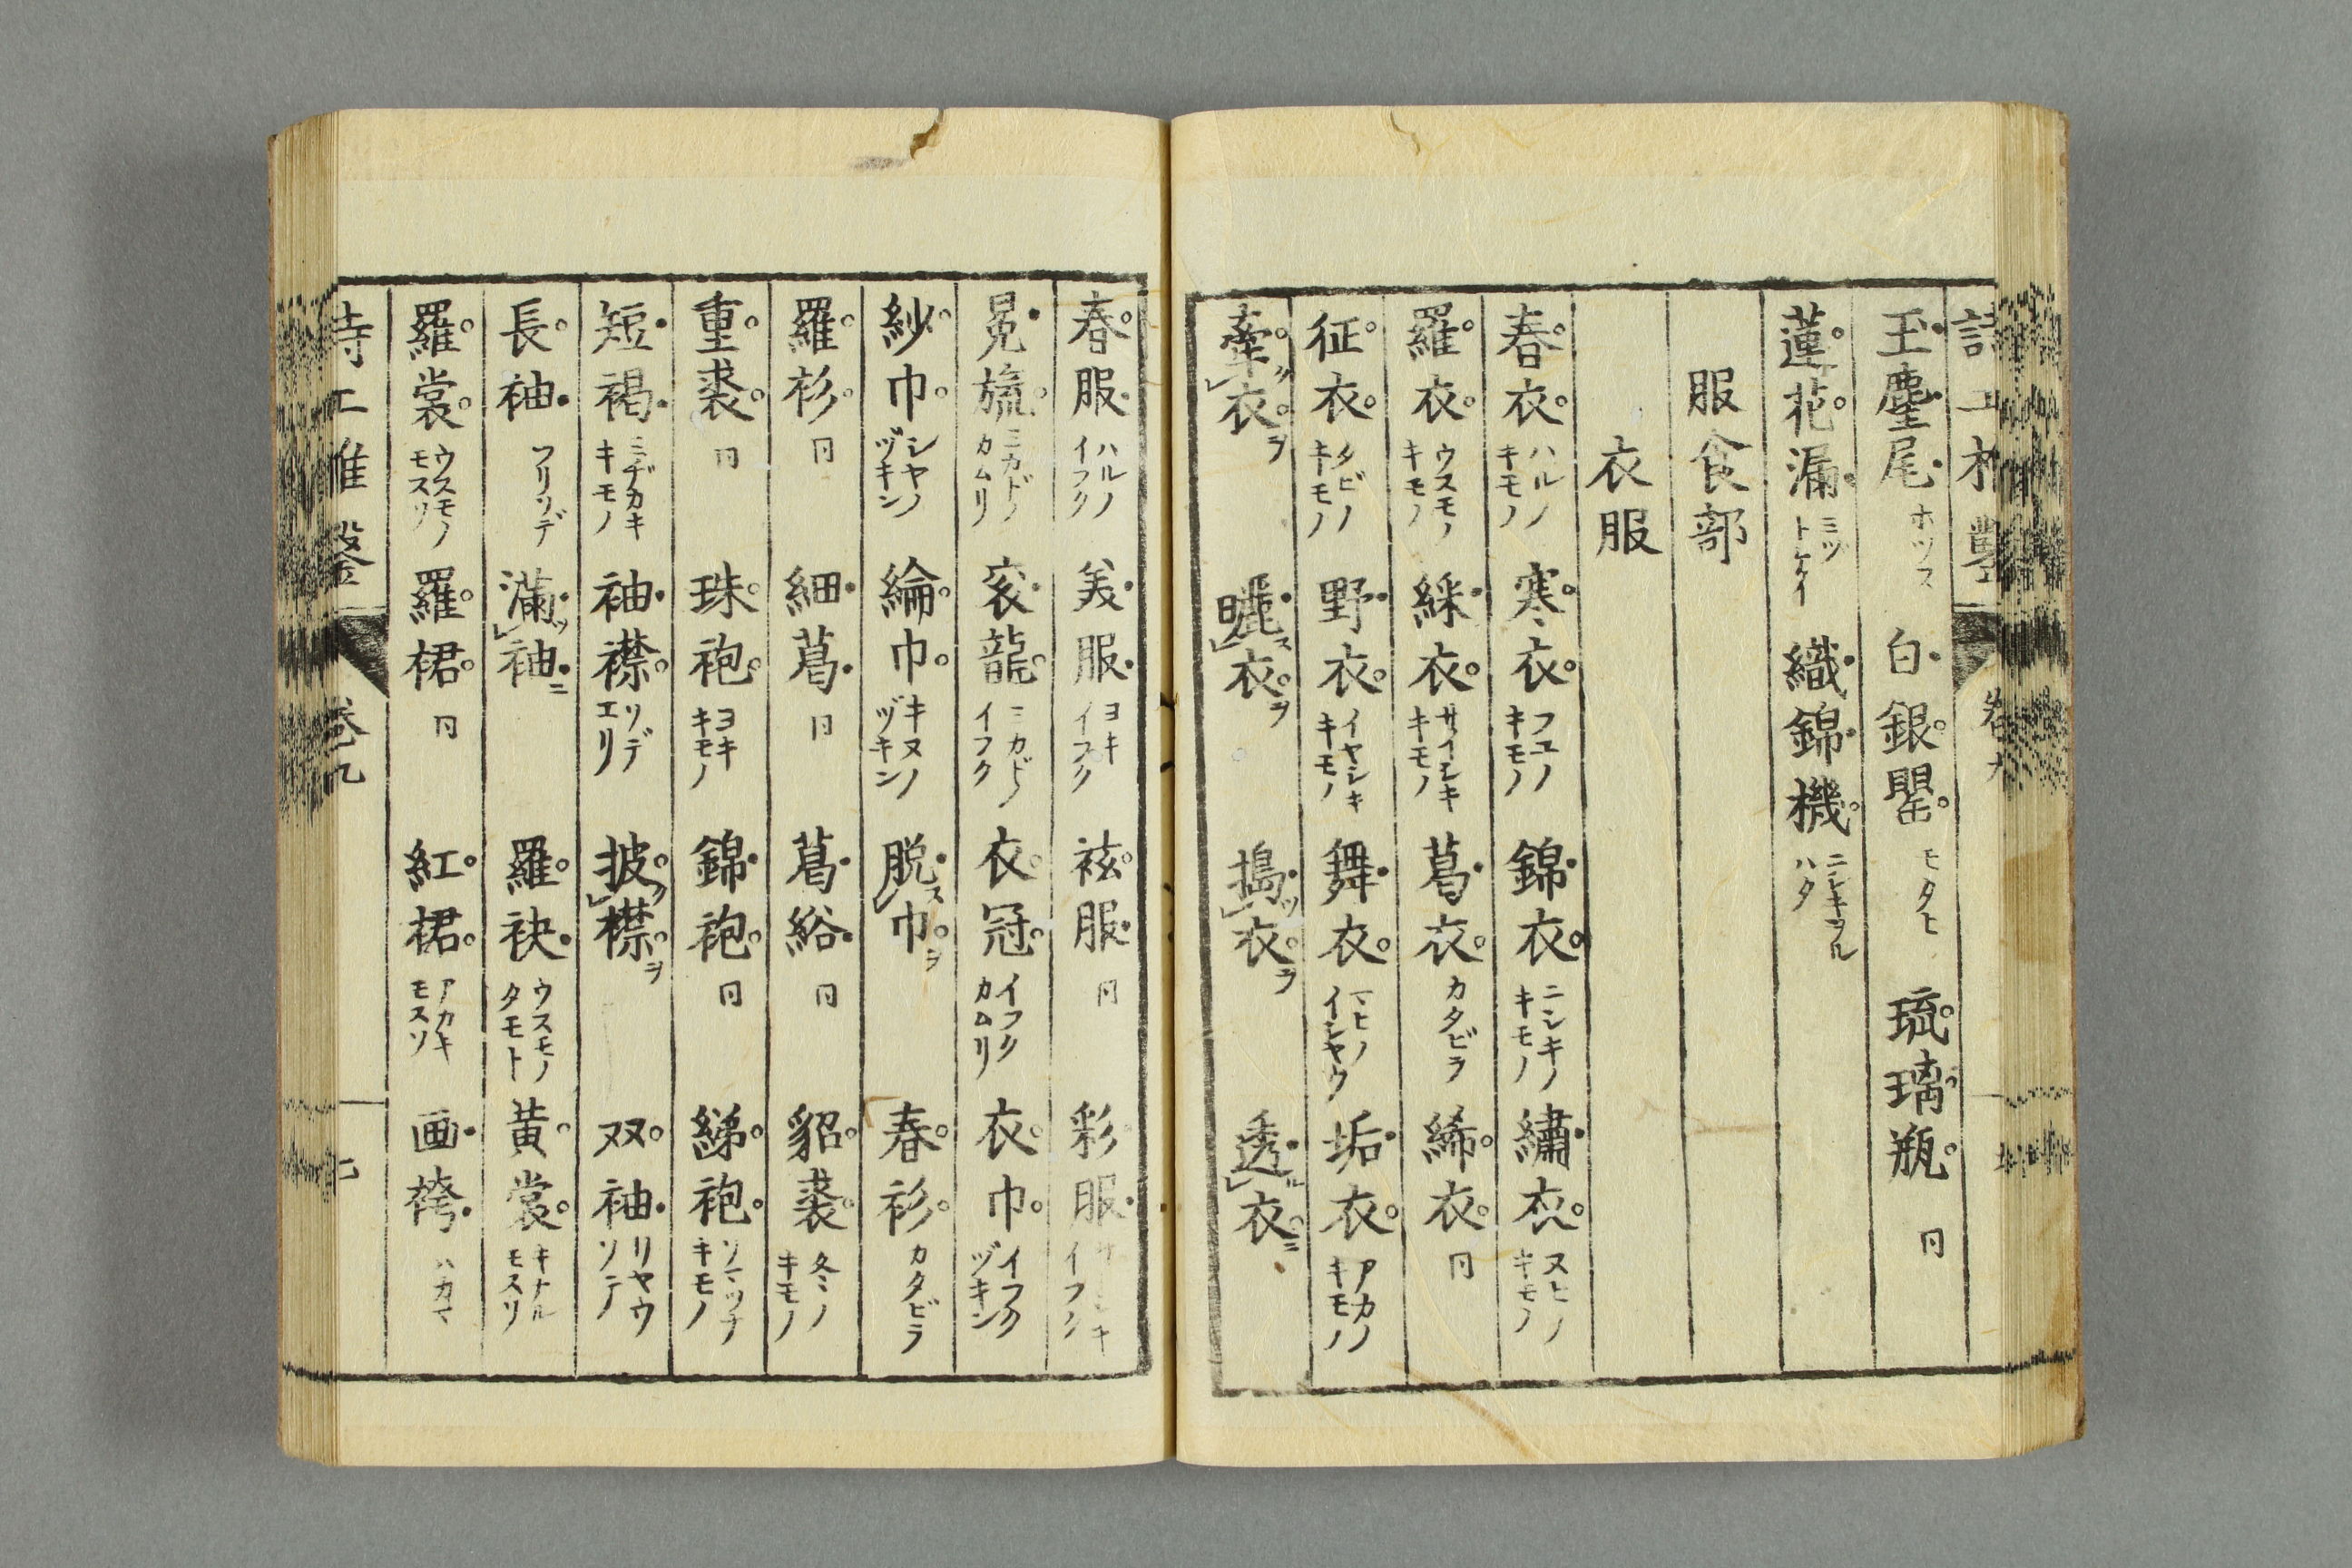 玉塵尾 ホツス 白銀罌 モタヒ 琉璃瓶 同
蓮花漏 ミヅトケイ 織錦機 ニシキヲルハタ
服食部
衣服
春衣 ハルノキモノ 寒衣 フユノキモノ 錦衣 ニシキノキモノ 繡衣 ヌヒノキモノ
羅衣 ウスモノキモノ 綵衣 サイシキキモノ 葛衣 カタビラ 絺衣 同
征衣 タビノキモノ 野衣 イヤシキキモノ 舞衣 マヒノイシヤウ 垢衣 アカノキモノ
牽ク㆑衣ヲ 曬ス㆑衣ヲ 搗ツ㆑衣ヲ 透ル㆑衣ニ
春服 ハルノイフク 美服 ヨキイフク 袨服 同 彩服 サイシキイフク
冕旒 ミカドノカムリ 袞龍 ミカドノイフク 衣冠 イフクカムリ 衣巾 イフクヅキン
紗巾 シヤノヅキン 綸巾 キヌノヅキン 脱ス㆑巾ヲ 春衫 カタビラ
羅衫 同 細葛 同 葛綌 同 貂裘 冬ノキモノ
重裘 同 珠袍 ヨキキモノ 錦袍 同 綈袍 ソマツナキモノ
短褐 ミヂカキキモノ 袖襟 ソデエリ 披ク㆑襟ヲ 双袖 リヤウソテ
長袖 フリソデ 滿ツ㆑袖ニ 羅袂 ウスモノタモト 黄裳 キナルモスソ
羅裳 ウスモノモスソ 羅裙 同 紅裙 アカキモスソ 画袴 ハカマ
詩工推鑿 巻九 七